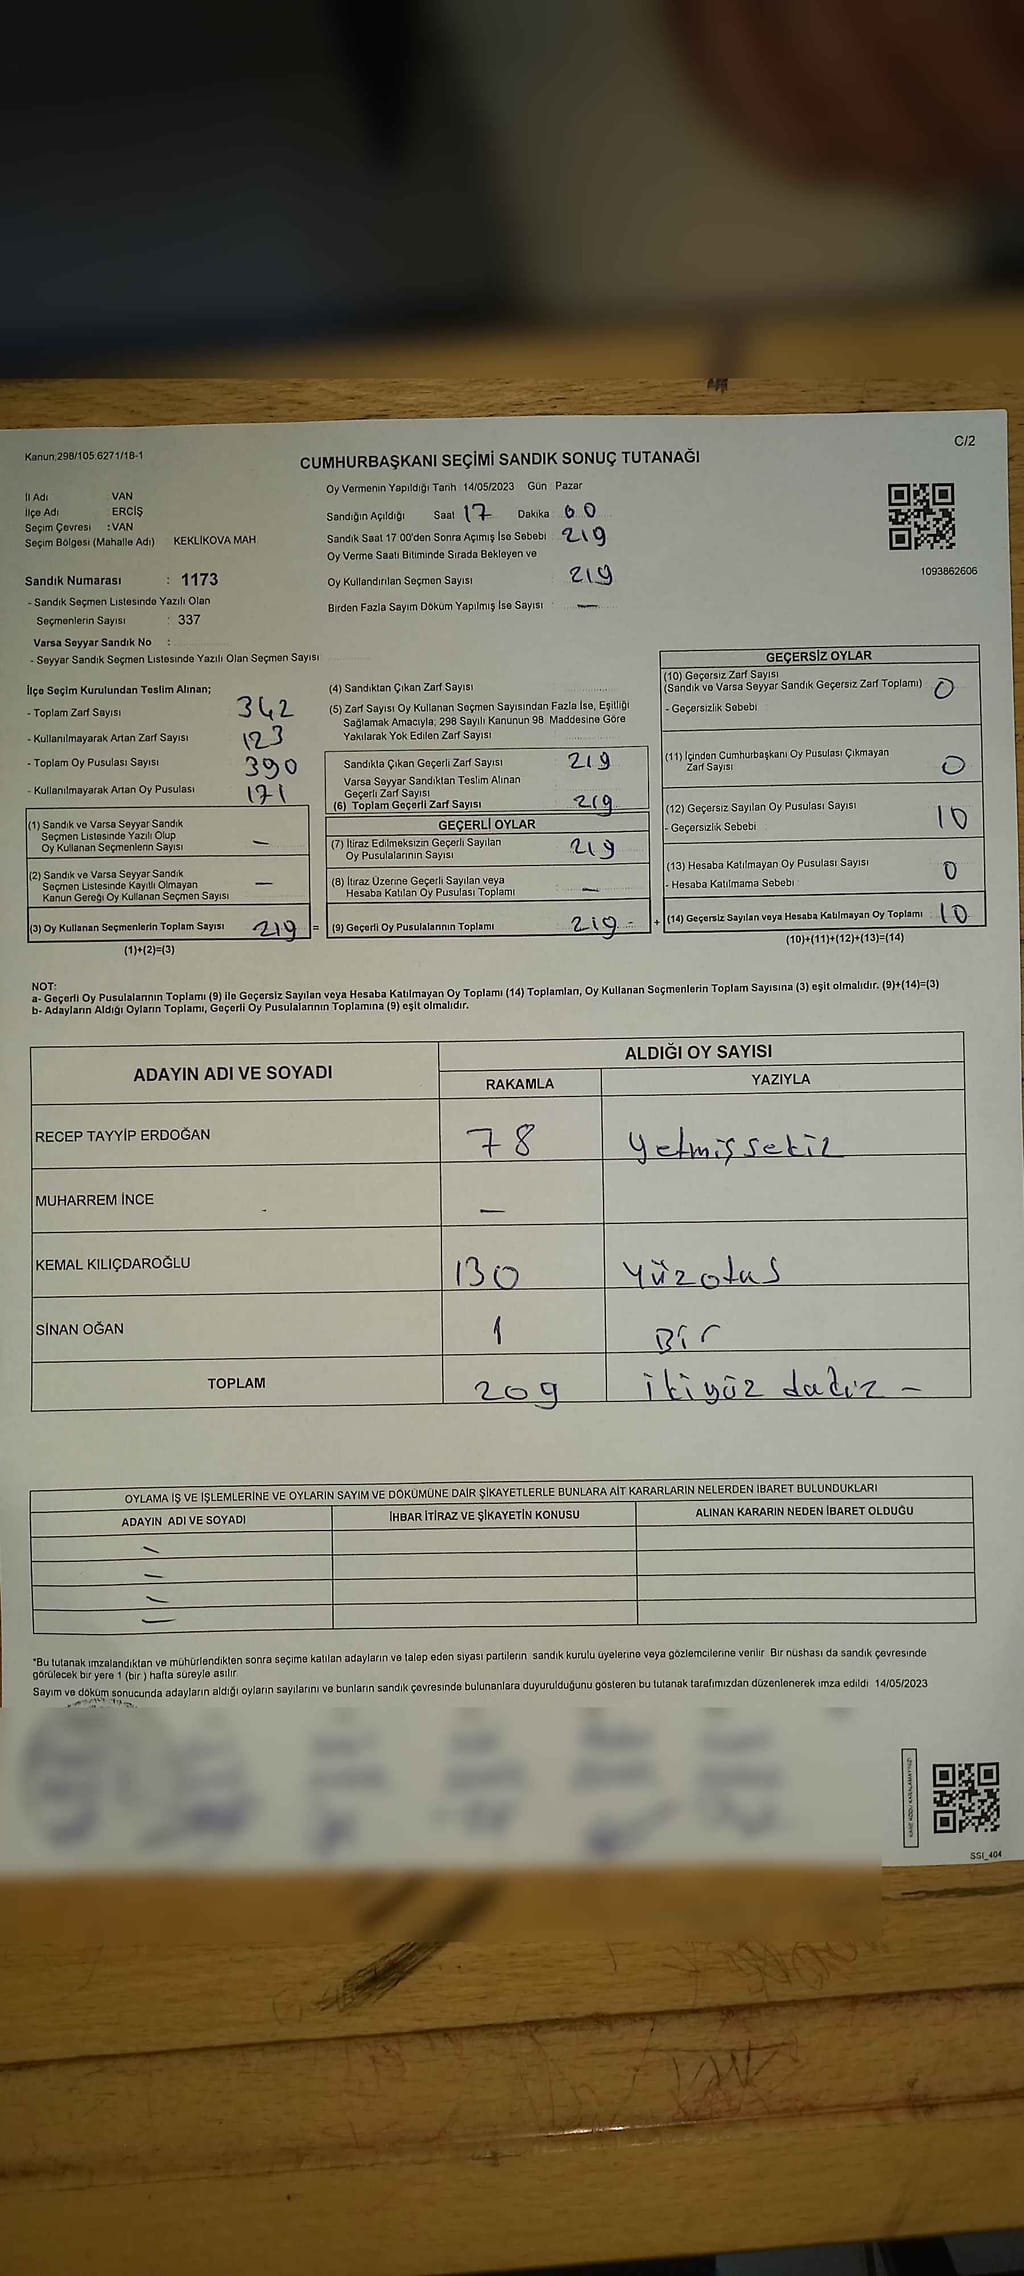 C/2
Kanun,298/105.6271/18-1
CUMHURBAŞKANI SEÇİMİ SANDIK SONUÇ TUTANAĞI
İl Adı VAN
İlçe Adı ERCİŞ
Seçim Çevresi : VAN
Seçim Bölgesi (Mahalle Adı) KEKLİKOVA MAH
Sandık Numarası : 1173
- Sandık Seçmen Listesinde Yazılı Olan
Seçmenlerin Sayısı : 337
Varsa Seyyar Sandık No :
- Seyyar Sandık Seçmen Listesinde Yazılı Olan Seçmen Sayısı
Oy Vermenin Yapıldığı Tarih 14/05/2023 Gün Pazar
Sandığın Açıldığı Saat 17 Dakika 00
Sandık Saat 17 00'den Sonra Açımış İse Sebebi 219
Oy Verme Saati Bitiminde Sırada Bekleyen ve
Oy Kullandırılan Seçmen Sayısı 219
Birden Fazla Sayım Döküm Yapılmış İse Sayısı : —
1093862606
İlçe Seçim Kurulundan Teslim Alınan;
- Toplam Zarf Sayısı 342
- Kullanılmayarak Artan Zarf Sayısı 123
- Toplam Oy Pusulası Sayısı 390
- Kullanılmayarak Artan Oy Pusulası 171
(1) Sandık ve Varsa Seyyar Sandık
Seçmen Listesinde Yazılı Olup
Oy Kullanan Seçmenlerin Sayısı —
(2) Sandık ve Varsa Seyyar Sandık
Seçmen Listesinde Kayıtlı Olmayan
Kanun Gereği Oy Kullanan Seçmen Sayısı —
(3) Oy Kullanan Seçmenlerin Toplam Sayısı 219 =
(1)+(2)=(3)
(4) Sandıktan Çıkan Zarf Sayısı
(5) Zarf Sayısı Oy Kullanan Seçmen Sayısından Fazla İse, Eşitliği
Sağlamak Amacıyla, 298 Sayılı Kanunun 98 Maddesine Göre
Yakılarak Yok Edilen Zarf Sayısı
Sandıkla Çıkan Geçerli Zarf Sayısı 219
Varsa Seyyar Sandıktan Teslim Alınan
Geçerli Zarf Sayısı
(6) Toplam Geçerli Zarf Sayısı 219
GEÇERLİ OYLAR
(7) İtiraz Edilmeksizin Geçerli Sayılan
Oy Pusulalarının Sayısı 219
(8) İtiraz Üzerine Geçerli Sayılan veya
Hesaba Katılan Oy Pusulası Toplamı —
(9) Geçerli Oy Pusulalarının Toplamı 219 - +
GEÇERSİZ OYLAR
(10) Geçersiz Zarf Sayısı
(Sandık ve Varsa Seyyar Sandık Geçersiz Zarf Toplamı) 0
- Geçersizlik Sebebi
(11) İçinden Cumhurbaşkanı Oy Pusulası Çıkmayan
Zarf Sayısı 0
(12) Geçersiz Sayılan Oy Pusulası Sayısı
- Geçersizlik Sebebi 10
(13) Hesaba Katılmayan Oy Pusulası Sayısı 0
- Hesaba Katılmama Sebebi
(14) Geçersiz Sayılan veya Hesaba Katılmayan Oy Toplamı 10
(10)+(11)+(12)+(13)=(14)
NOT:
a- Geçerli Oy Pusulalarının Toplamı (9) ile Geçersiz Sayılan veya Hesaba Katılmayan Oy Toplamı (14) Toplamları, Oy Kullanan Seçmenlerin Toplam Sayısına (3) eşit olmalıdır. (9)+(14)=(3)
b- Adayların Aldığı Oyların Toplamı, Geçerli Oy Pusulalarının Toplamına (9) eşit olmalıdır.
ADAYIN ADI VE SOYADI ALDIĞI OY SAYISI
RAKAMLA YAZIYLA
RECEP TAYYİP ERDOĞAN 78 yetmiş sekiz
MUHARREM İNCE —
KEMAL KILIÇDAROĞLU 130 Yüzotus
SİNAN OĞAN 1 Bir
TOPLAM 209 ikiyüz dakız -
OYLAMA İŞ VE İŞLEMLERİNE VE OYLARIN SAYIM VE DÖKÜMÜNE DAİR ŞİKAYETLERLE BUNLARA AİT KARARLARIN NELERDEN İBARET BULUNDUKLARI
ADAYIN ADI VE SOYADI İHBAR İTİRAZ VE ŞİKAYETİN KONUSU ALINAN KARARIN NEDEN İBARET OLDUĞU
*Bu tutanak imzalandıktan ve mühürlendikten sonra seçime katılan adayların ve talep eden siyasi partilerin sandık kurulu üyelerine veya gözlemcilerine verilir Bir nüshası da sandık çevresinde
görülecek bir yere 1 (bir ) hafta süreyle asılır
Sayım ve döküm sonucunda adayların aldığı oyların sayılarını ve bunların sandık çevresinde bulunanlara duyurulduğunu gösteren bu tutanak tarafımızdan düzenlenerek imza edildi 14/05/2023
KARE KODU KARALAMAYINIZ!
SSI_404